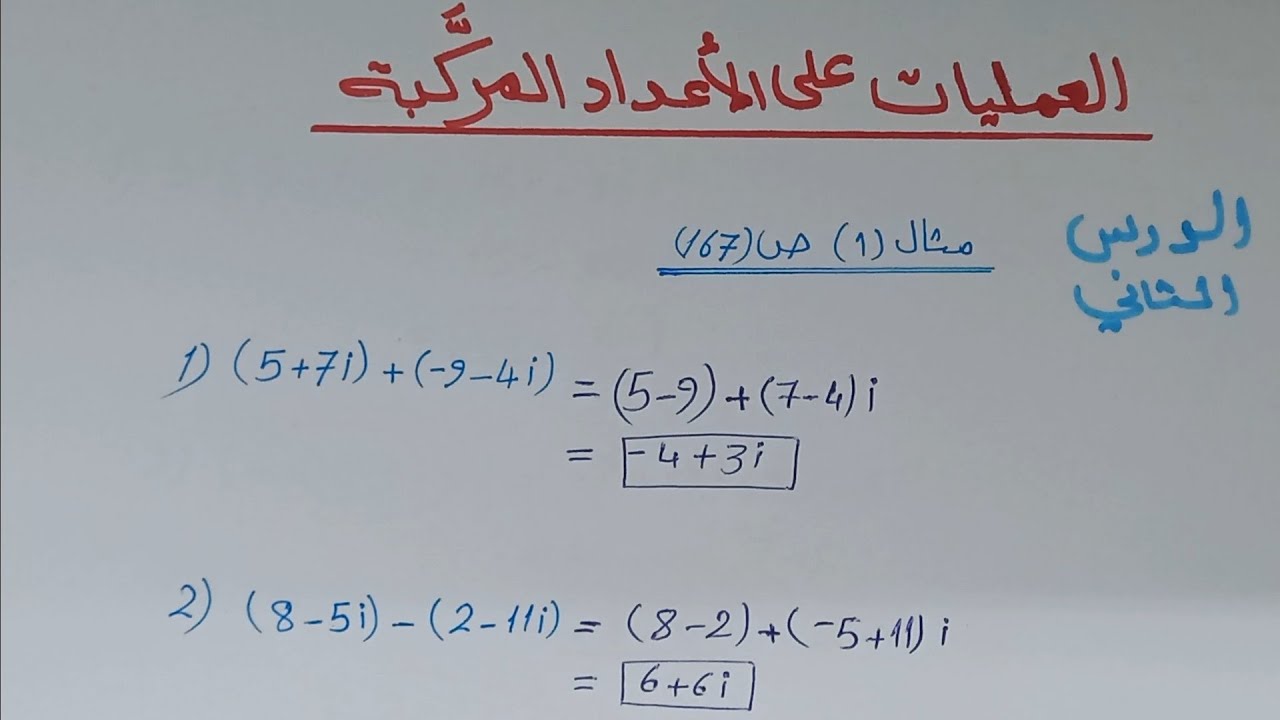 العمليات على الأعداد المركَّبة
الدرس
الثاني
مثال (1) ص(167)
1) (5+7i)+(-9-4i) = (5-9)+(7-4)i
= -4+3i
2) (8-5i)-(2-11i) = (8-2)+(-5+11)i
= 6+6i